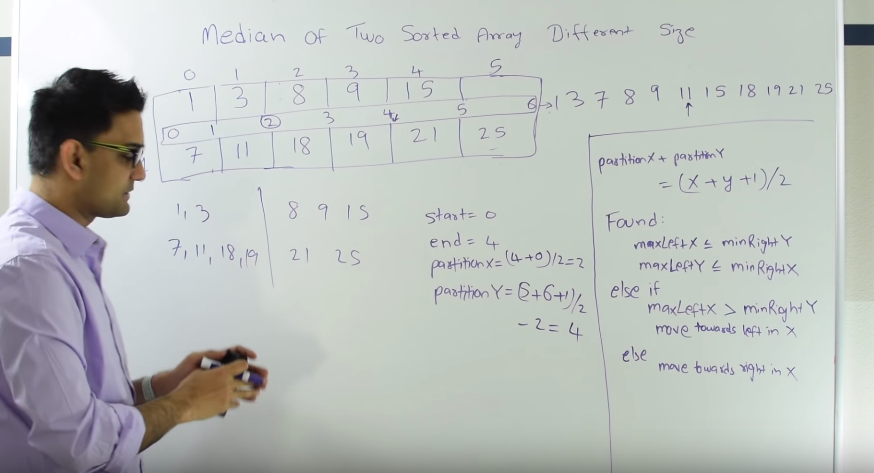 Median Of Two Sorted Array Different Size
0 1 2 3 4 5
1 3 8 9 15
0 1 2 3 4 5 6
7 11 18 19 21 25
→ 1 3 7 8 9 11 15 18 19 21 25
↑
1, 3 | 8 9 15
7, 11, 18, 19 | 21 25
start = 0
end = 4
partitionX = (4+0)/2 = 2
partitionY = (5+6+1)/2
- 2 = 4
partitionX + partitionY
= (X + y + 1)/2
Found:
maxLeftX ≤ minRightY
maxLeftY ≤ minRightX
else if
maxLeftX > minRightY
move towards left in X
else
move towards right in X